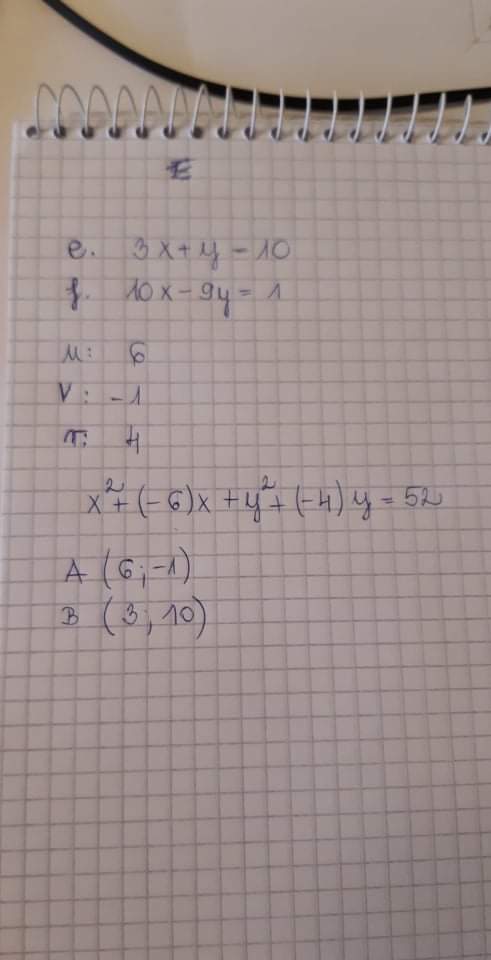 E
e. 3x+y-10
f. 10x-9y=1
u: 6
v: -1
r: 4
x²+(-6)x+y²+(-4)y=52
A (6;-1)
B (3;10)